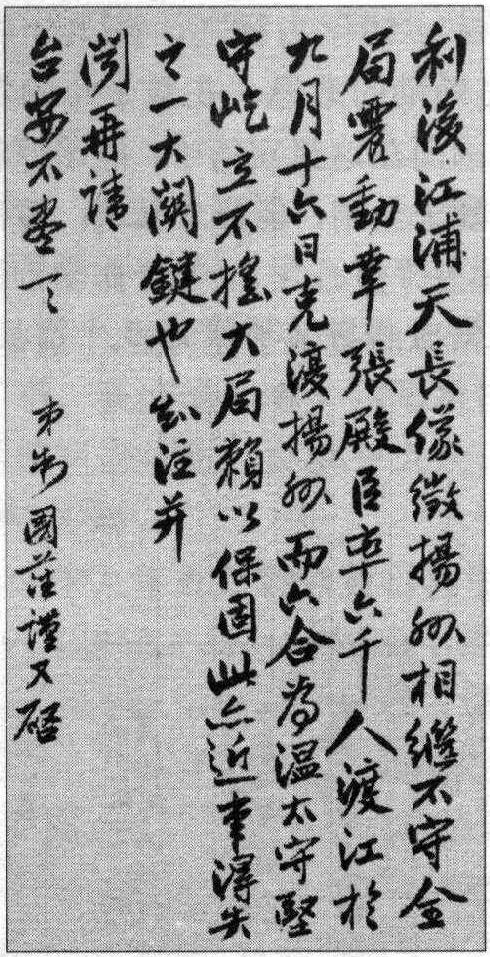 利後江浦天長儀徵揚州相繼不守全
局震動幸張殿臣率六千人渡江於
九月十六日克復揚州而六合為溫太守堅
守屹立不搖大局賴以保固此亦近事得失
之一大關鍵也知注并
聞再請
台安不盡一一　弟制國藩謹又啓